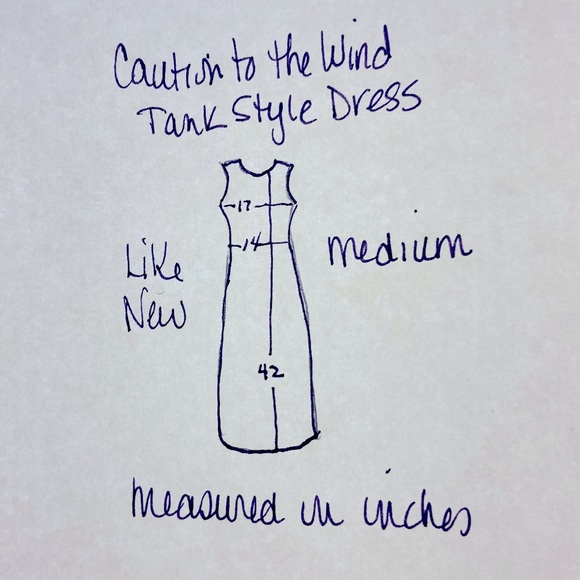 Caution to the Wind
Tank Style Dress
17
14
Like
New
medium
42
measured in inches